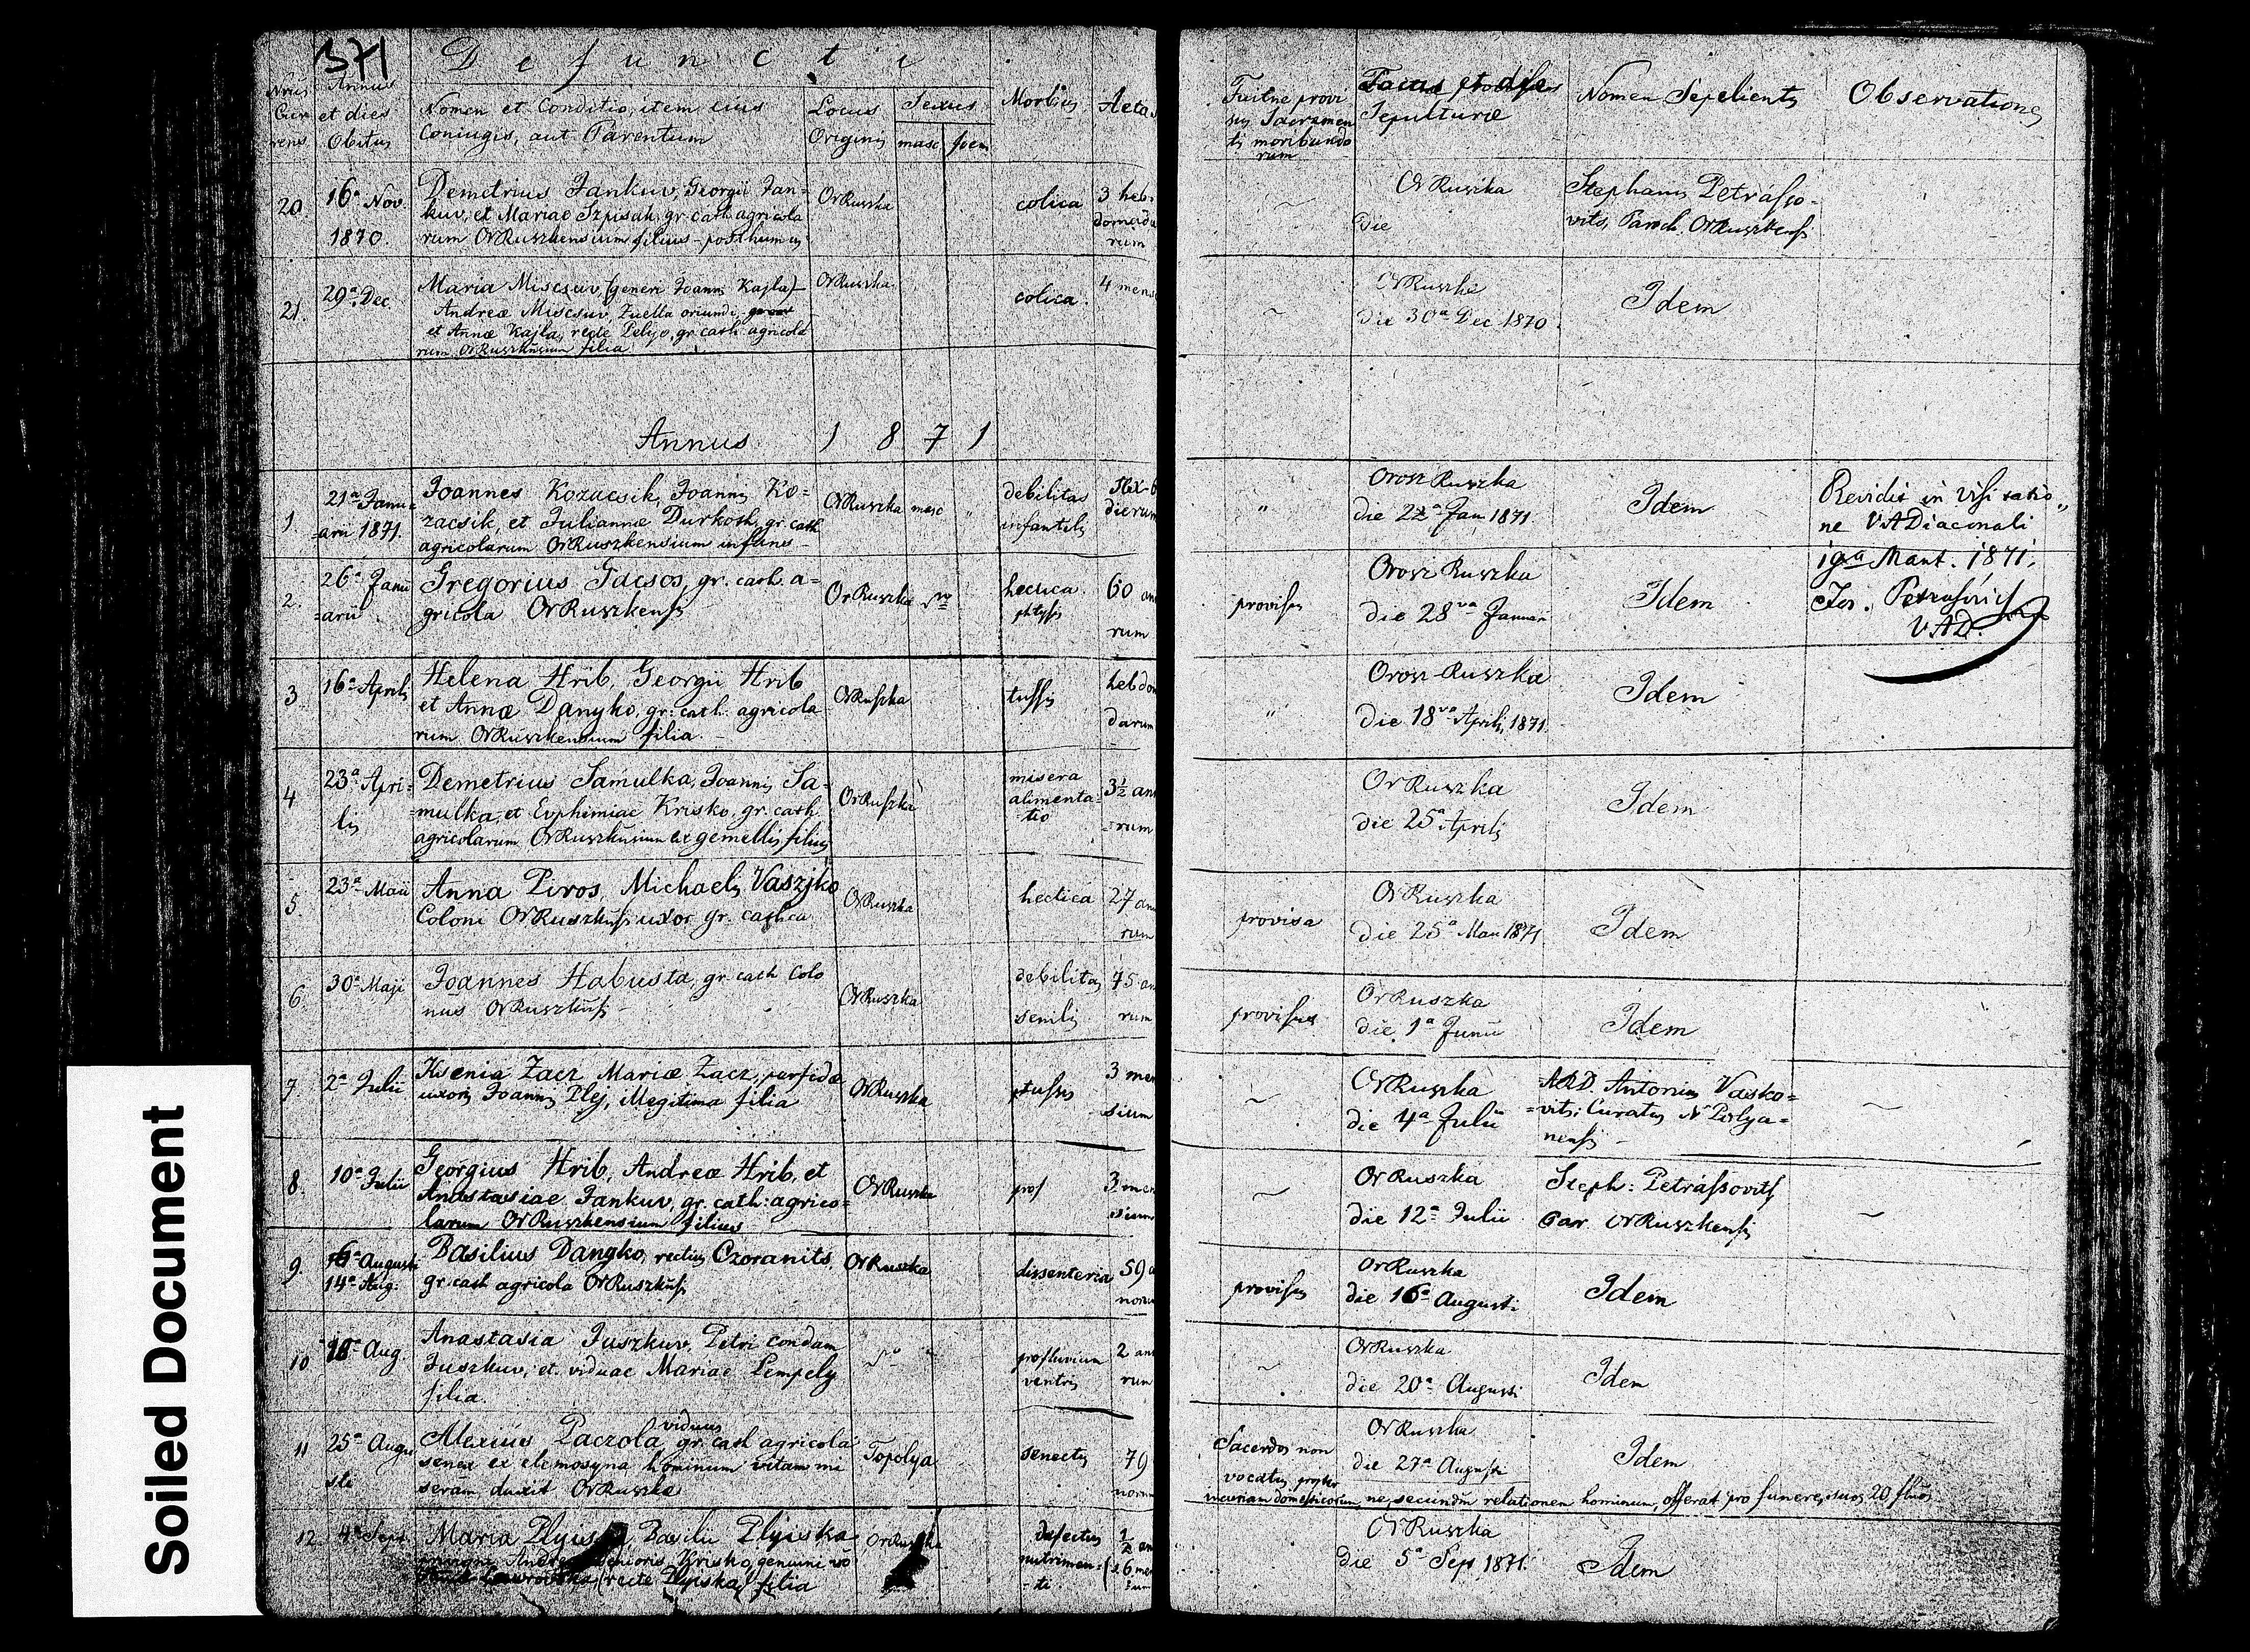 Soiled Document
371
Defuncti
Nrus Cur rens
Annus et dies Obitus
Nomen et Conditio, item eius
Coniugis, aut Parentum
Locus Originis
Sexus
masc foem
Morbus
Aetas
Fuitne provi
sus Sacramen
tis moribundo
rum
Locus et dies
Sepulturæ
Nomen Sepelientis
Observationes
20
16a Nov.
1870.
Demetrius Jankuv, Georgii Jan=
kuv, et Mariae Szpisak, gr. cath. agricola
rum OrRuszkensium filius posthumus
OrRuszka
colica
3 heb-
domada
rum
OrRuszka
Die
Stephanus Petrásso-
vits, Paroch. OrRuszkensis
21.
29a Dec.
Maria Miscsuv, (generi Joannis Kajla)
Andreæ Miscsuv, Zuella oriundi
et Annæ Kajla, recte Pelyo, gr. cath. agricola
rum OrRuszkensium filia
OrRuszka
colica.
4 mens
OrRuszka
die 30a Dec 1870
Idem
Annus 1871
1.
21a Janu=
arii 1871.
Joannes Kozacsik, Joannis Ko=
zacsik, et Juliannæ Durkosh, gr. cath
agricolarum OrRuszkensium infans
OrRuszka
masc
"
debilitas
infantilis
dierum
"
Orosz Ruszka
die 22a Jan 1871.
Idem
Revidit in Visitatio
ne VADiaconali
19a Mart. 1871.
VAD.
2.
26a Janu
=arii
Gregorius Gacsos, gr. cath. a=
gricola OrRuszkensis
OrRuszka
hectica
phtysis
60 an
rum
provisus
Orosz Ruszka
die 28va Januarii
Idem
3
16a Aprilis
Helena Hrib, Georgii Hrib
et Annæ Dangko, gr. cath. agricola
rum OrRuszkensium filia.
OrRuszka
tussis
hebdom
darum
"
Orosz-Ruszka
die 18va Aprilis, 1871.
Idem
4
23a Apri=
lis
Demetrius Samulka, Joannis Sa=
mulka, et Euphimiae Krisko, gr. cath
agricolarum OrRuszkensium ex gemellis filius
OrRuszka
misera
alimenta=
tio
3½ an
=rum
OrRuszka
die 25a Aprilis
Idem
5.
23a Maii
Anna Piros, Michaelis Vaszjko
Coloni OrRuszkensis uxor gr. cathca
OrRuszka
hectica
27 an
rum
provisa
OrRuszka
die 25a Maii 1871
Idem
6.
30a Maji
Joannes Habusta, gr. cath Colo
nus OrRuszkensis
OrRuszka
debilitas
senilis
75 an
rum
provisus
OrRuszka
die 1a Junii
Idem
7
2a Julii
Ksenia Zacz Mariæ Zacz, perfidæ
uxoris Joannis Plej, illegitima filia
OrRuszka
ptussis
3 men
sium
OrRuszka
die 4a Julii
ARD. Antonius Vasko=
=vits, Curatus N Polya=
nensis
8.
10a Julii
Georgius Hrib, Andreæ Hrib, et
Anastasiae Jankuv, gr. cath. agrico=
larum OrRuszkensium filius
OrRuszka
3 men
sium
OrRuszka
die 12a Julii
Steph: Petrássovits
Par. OrRuszkensis
9.
Augusti
14a Aug.
Basilius Dangko, rectius Czoranits
gr. cath agricola OrRuszkensis
OrRuszka
dissenteria
59 a
norum
provisus
OrRuszka
die 16a Augusti
Idem
10
18a Aug
Anastasia Juszkuv, Petri condam
Juszkuv, et viduae Mariae Lempely
filia.
profluvium
ventris
2 ann
rum
OrRuszka
die 20a Augusti
Idem
11
25a Augu
sti
Alexius Paczola, viduus gr. cath agricola
senex ex elemosyna hominum vitam mi
seram duxit OrRuszka
Topolya
senectus
79
norum
Sacerdos non
vocatus propter
incuriam domesticorum, ne secundum relationem hominum, offerat pro funere suos 20 flnos
OrRuszka
die 27a Augusti
Idem
12.
4a Sept
Maria Plyiska, Basilii Plyiska
privigni Andreæ senioris Krisko, genuine
(recte Plyiska) filia
OrRuszka
defectus
nutrimen=
ti
½ an
6 men
OrRuszka
die 5a Sep 1871.
Idem